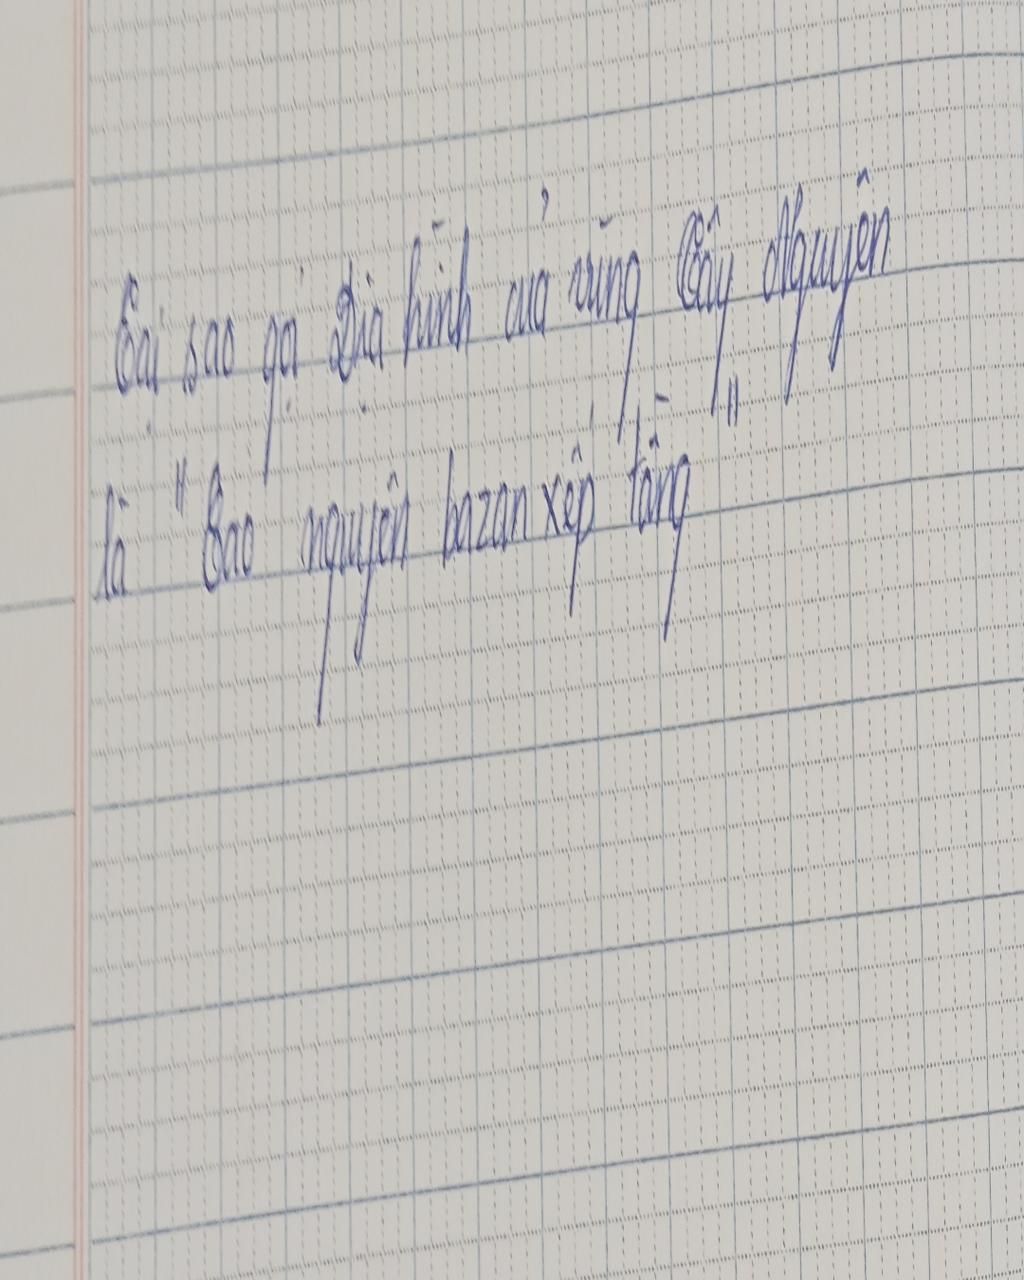 Tại sao gọi Địa hình của vùng Tây Nguyên
là "Cao nguyên bazan xếp tầng"